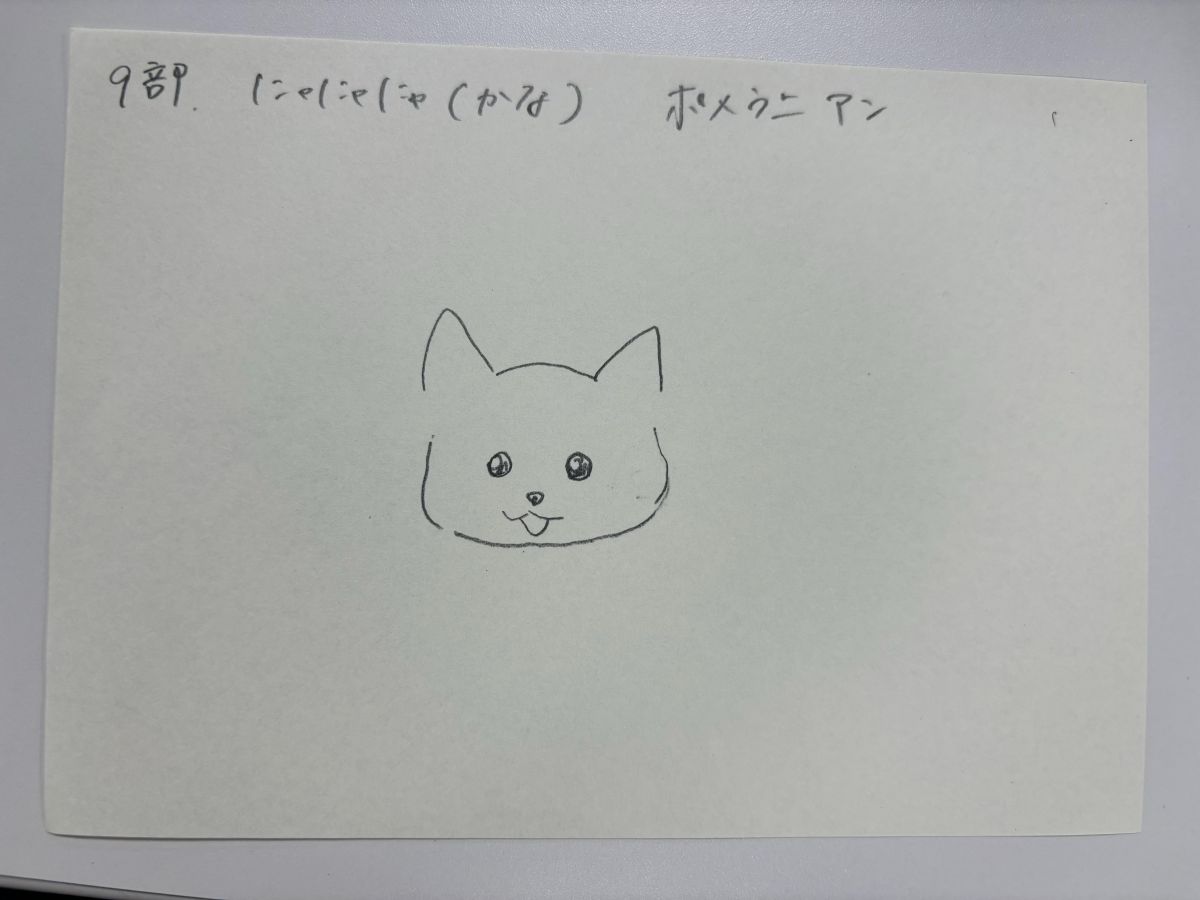 9部. にゃにゃにゃ(かな) ポメラニアン